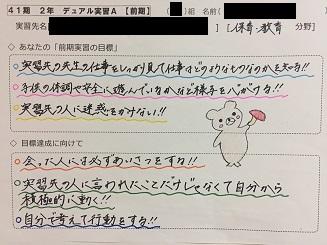 41期 2年 デュアル実習A 【前期】 ( )組 名前
実習先名 [保育・教育 分野]
◇ あなたの「前期実習の目標」
○実習先の先生の仕事をしっかり見て仕事はどのようなものなのかを知る!!
○子供の体調や安全に遊んでいるかなど様子を心がける!!
○実習先の人に迷惑をかけない!!
◇ 目標達成に向けて
○会った人には必ずあいさつをする!!
○実習先の人に言われたことだけじゃなくて自分から
積極的に動く!!
○自分で考えて行動をする!!